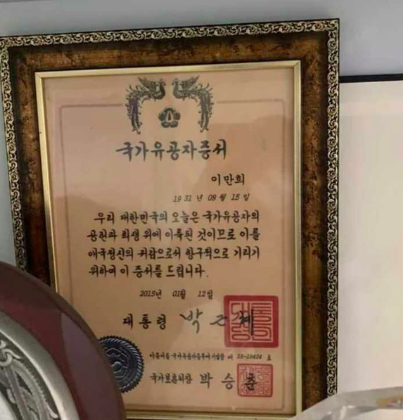 국가유공자증서
이만희
1931 년 09월 15일
우리 대한민국의 오늘은 국가유공자의
공헌과 희생 위에 이룩된 것이므로 이를
애국정신의 귀감으로서 항구적으로 기리기
위하여 이 증서를 드립니다.
2015년 01월 12일
대통령 박근혜
국가보훈처장 박승춘